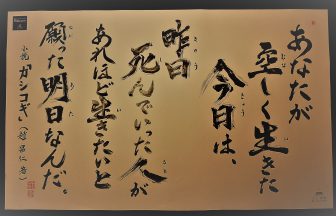 あなたが
空しく生きた
今日は、
昨日
死んでいった人が
あれほど生きたいと
願った明日なんだ。
小説 カシコギ（趙昌仁 著）